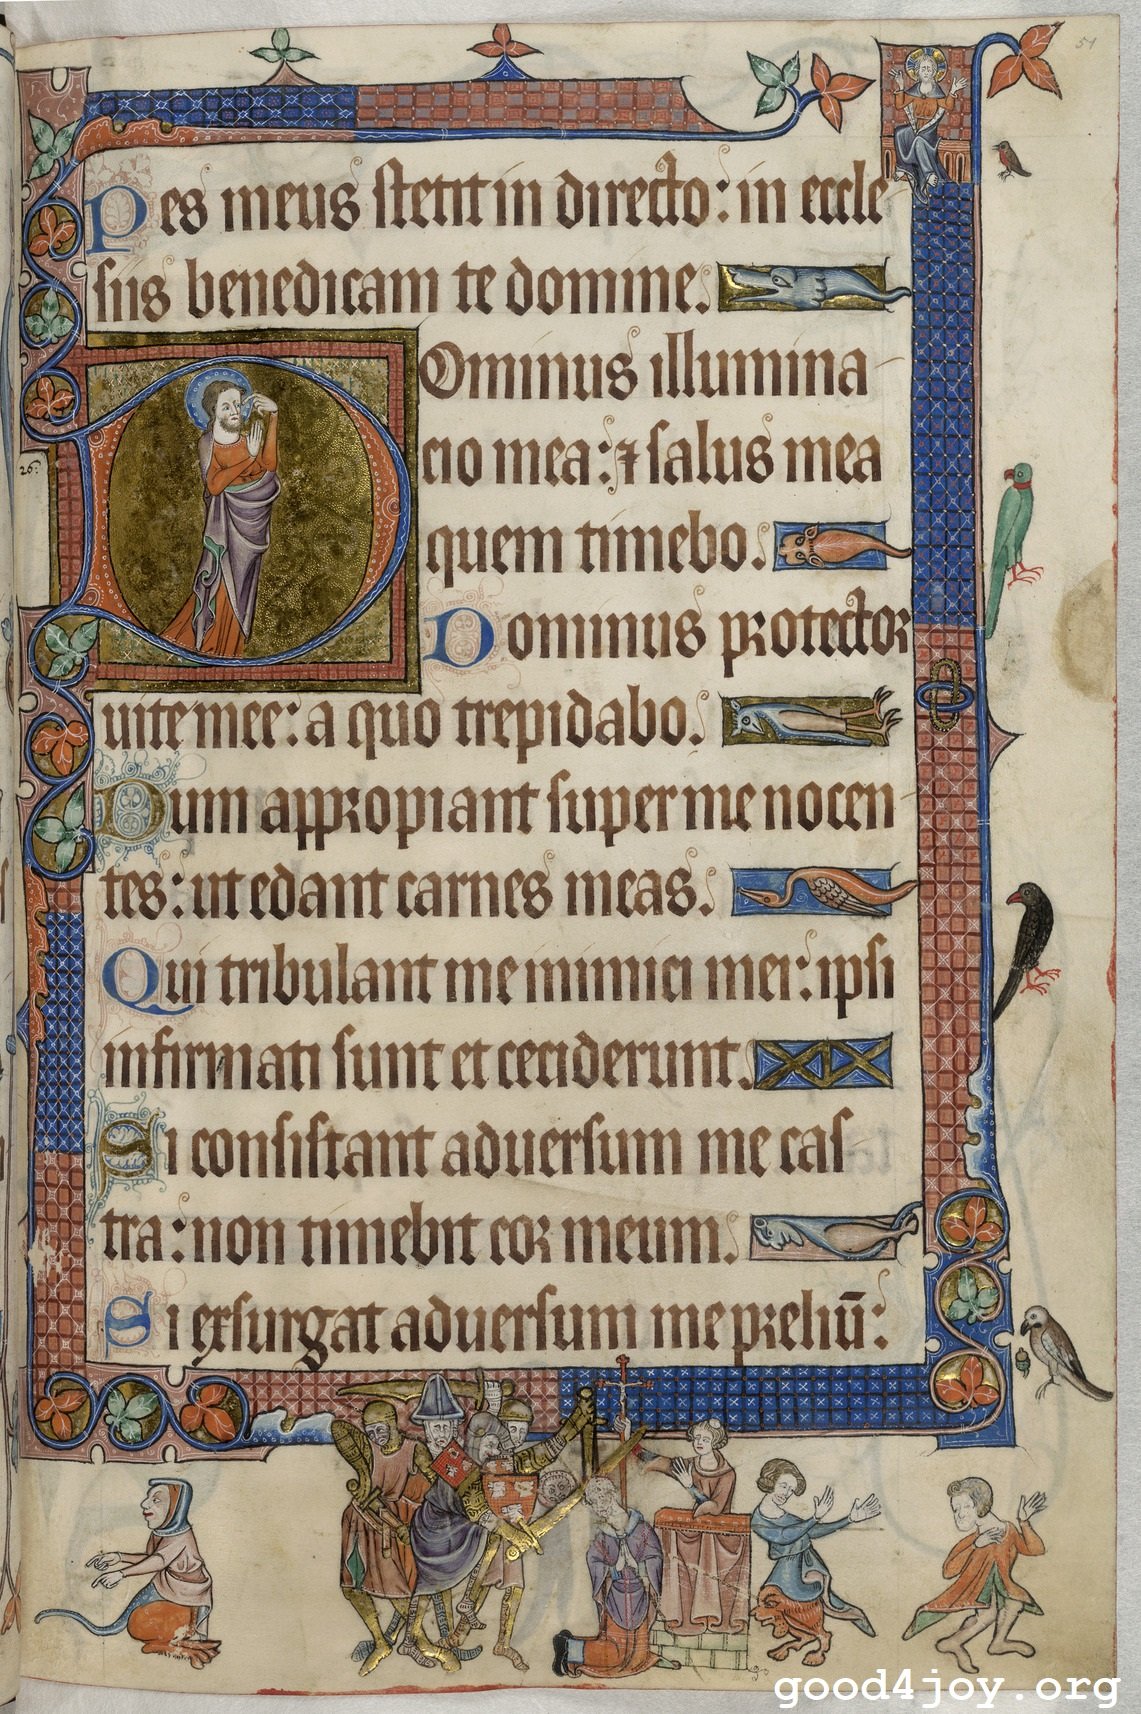 51
Pes meus stetit in directo: in eccle
siis benedicam te domine.
Dominus illumina
cio mea: ⁊ salus mea
26.
quem timebo.
Dominus protector
uite mee: a quo trepidabo.
Dum appropiant super me nocen
tes: ut edant carnes meas.
Qui tribulant me inimici mei: ipsi
infirmati sunt et ceciderunt.
Si consistant aduersum me cas
tra: non timebit cor meum.
Si exsurgat aduersum me preliū:
good4joy.org